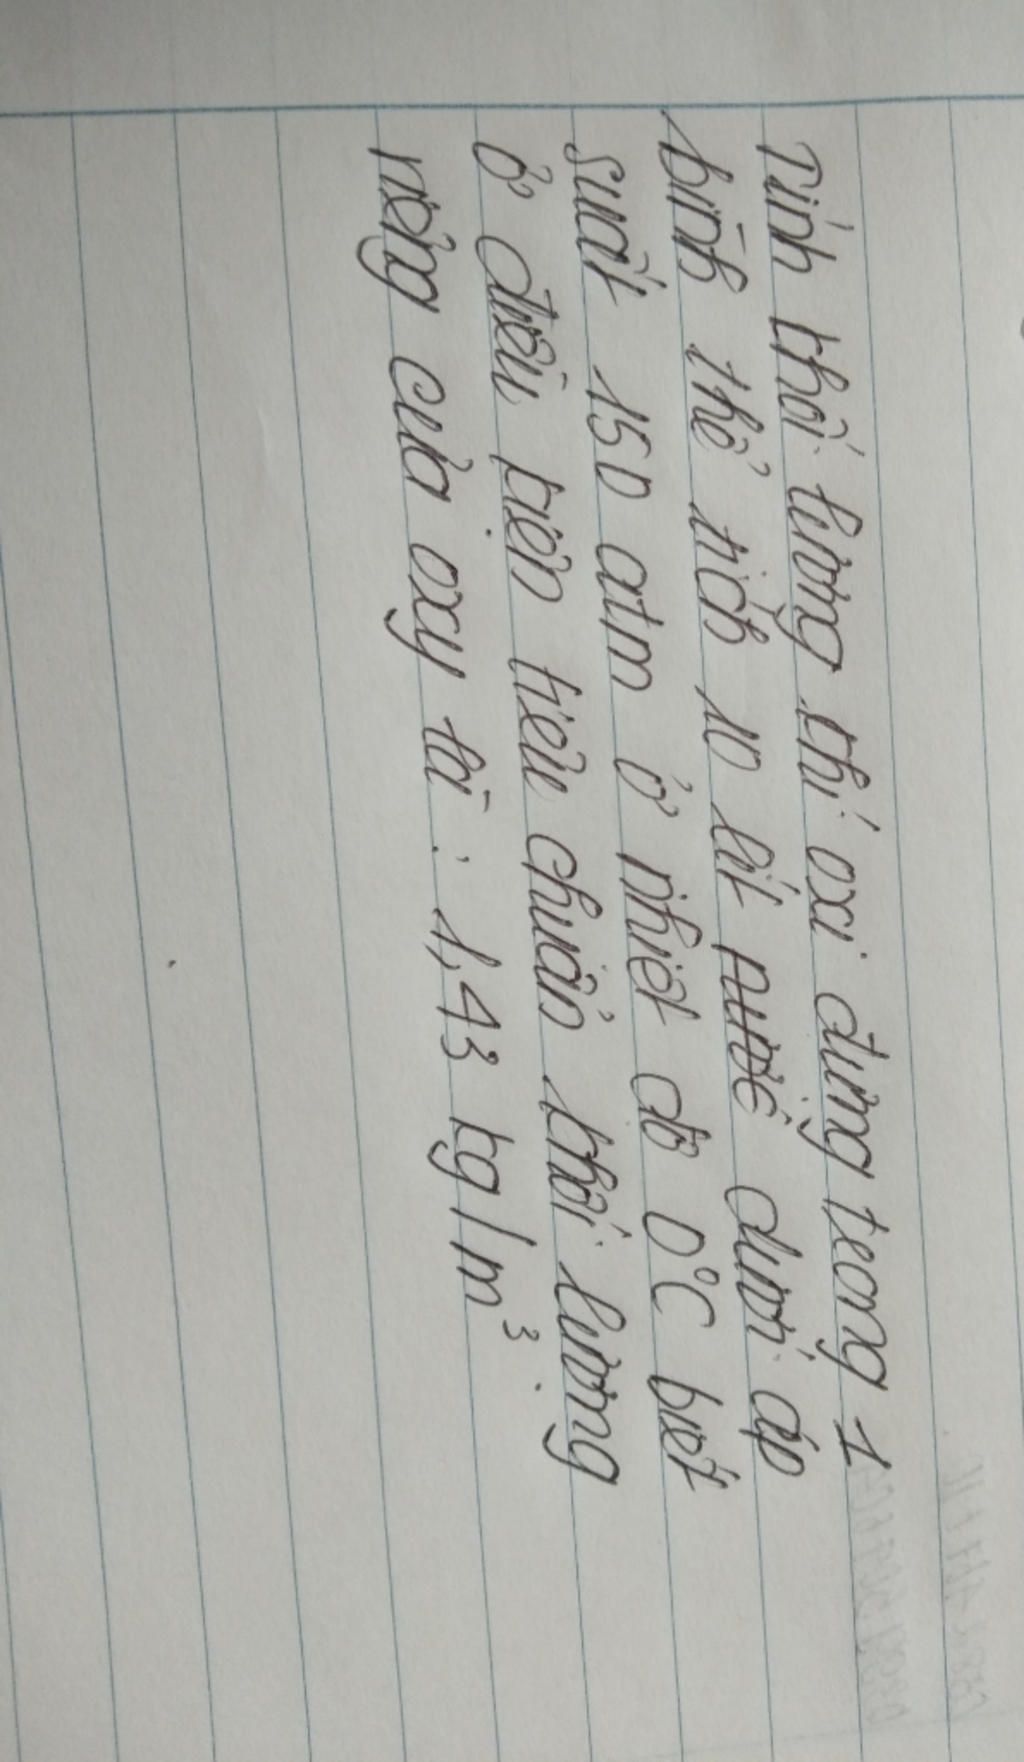 Tính khối lượng khí oxi đựng trong 1
bình thể tích 10 lít dưới áp
suất 150 atm ở nhiệt độ 0°C biết
ở điều kiện tiêu chuẩn khối lượng
riêng của oxy là : 1,43 kg/m³.